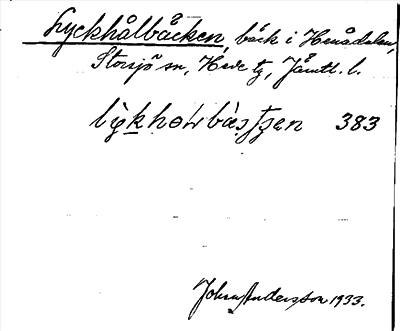 Lyckhålbäcken, bäck i Henådalen,
Storsjö sn, Hede tg, Jämtl. l.
383
John Andersson 1933.